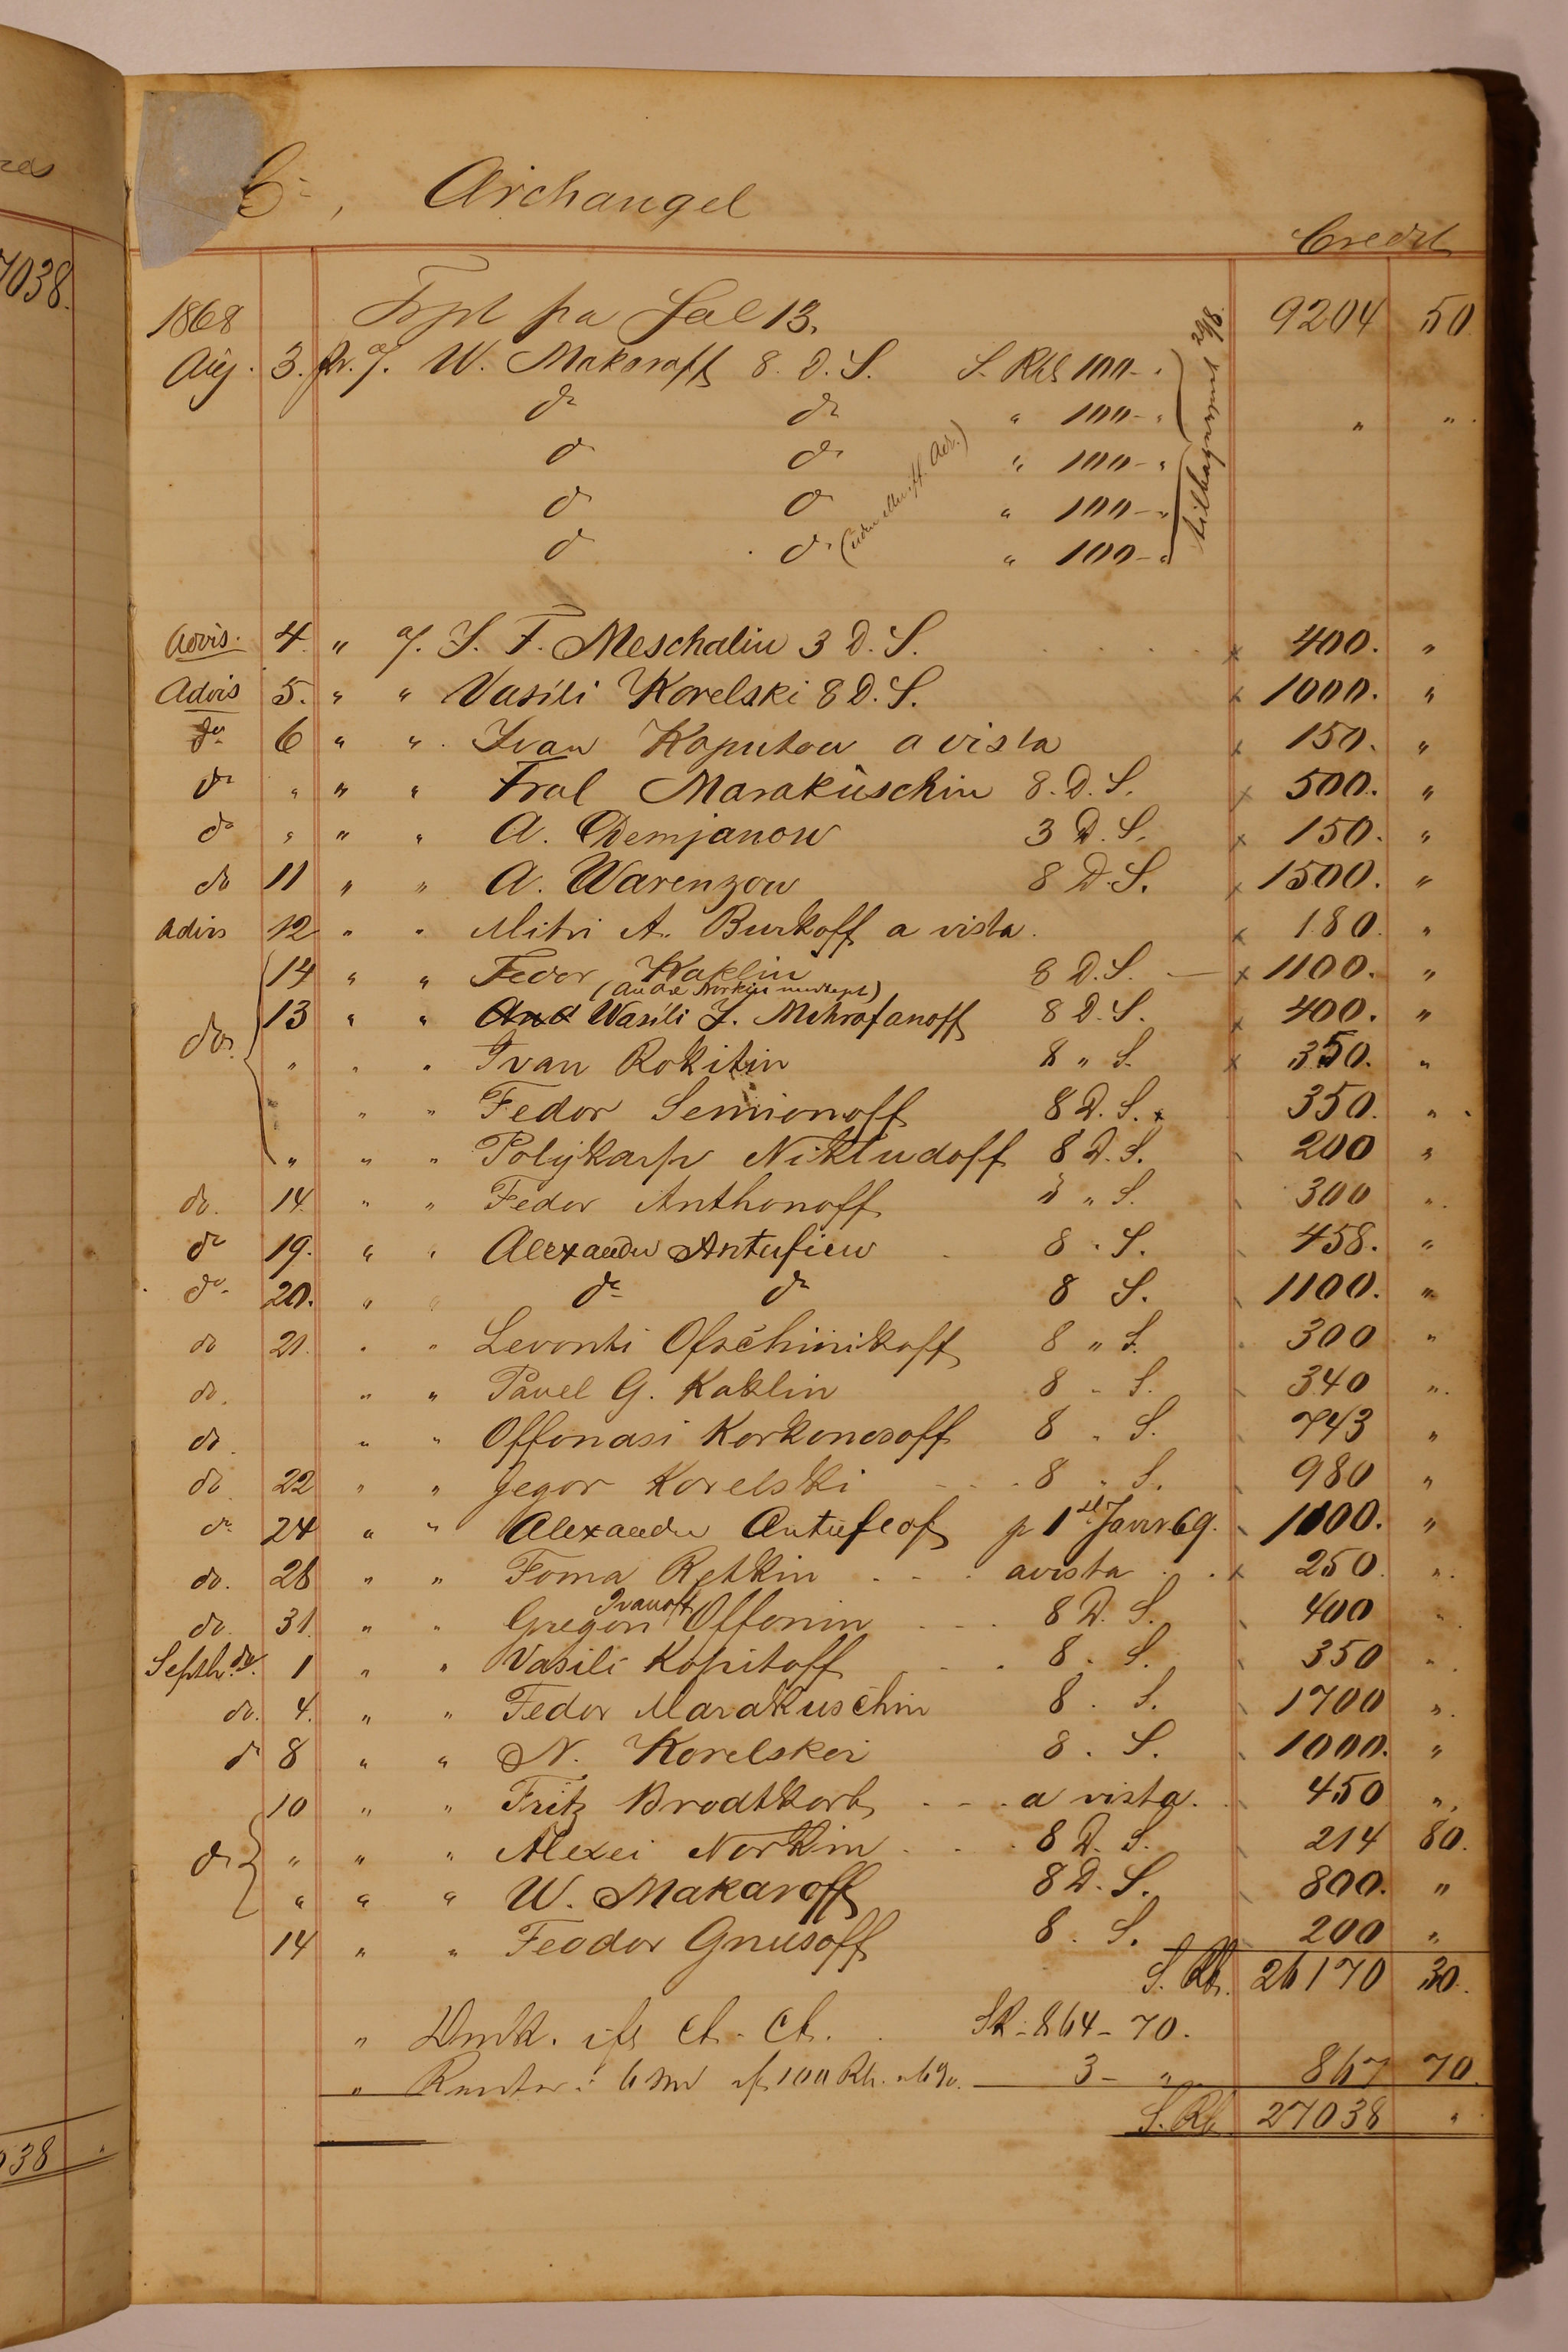 Co, Archangel
Credit
1868 Trpt fra Fol 13. 9204 50
Aug. 3. pr. a/. W. Makaroff 8. D. S. S. Rbl 100 - "
do do " 100 - " " "
do do " 100 - "
do do " 100 - "
do do " 100 - "
tilbagesendt 29/8.
Advis. 4. " a/. I. F. Meschalin 3 D. S. x 400. "
Advis 5. " " Vasili Korelski 8 D. S. x 1000. "
do 6 " " Ivan Koputow a vista x 150. "
do " " " Frol Marakuschin 8. D. S. x 500. "
do " " " A. Demjanow 3 D. S. x 150. "
do 11 " " A. Warenzow 8 D. S. x 1500. "
Advis 12 " " Mitri A. Burkoff a vista. x 180. "
14 " " Fedor Koklin 8 D. S. — x 1100. "
do. 13 " " And Wasili I. Mitrofanoff 8 D. S. x 400. "
" " " Ivan Rokitin 8 " S. x 350. "
" " " Fedor Semionoff 8 D. S. x 350. "
" " " Polykarp Nikludoff 8 D. S. 200 "
do. 14 " " Fedor Anthonoff " " S. 300 "
do 19. " " Alexander Antufiew 8 . S. 458. "
do. 20. " " do do 8 S. 1100. "
do 21. " " Levonti Ofschinikoff 8 " S. 300 "
do. " " Pavel G. Koklin 8 " S. 340 "
do " " Offonasi Korkonosoff 8 " S. 743 "
do 22 " " Jegor Korelski 8 " S. 980 "
do 24 " " Alexander Antufeof p 1st Janr 69. 1000. "
do. 28 " " Foma Retkin avista x 250 "
do. 31. " " Gregori Ivanoff Offonin 8 D. S. 400 "
Septb. do. 1 " " Vasili Kopitoff 8 . S. 350 "
do. 4. " " Fedor Marakuschin 8 . S. 1700 "
do 8 " " N. Korelskoi 8 . S. 1000. "
10 " " Fritz Brodtkorb a vista. 450 "
do " " " Alexei Norkin 8 D. S. 214 80.
" " " W. Makaroff 8 D. S. 800. "
14 " " Feodor Gnusoff 8 . S. 200 "
S. Rb. 26170 30.
" Omk. ifg Ct. Ct. SR. 864 - 70.
" Renter 6 Md af 100 Rb. a 6%. 3 - " 867 70.
S. Rb 27038 "